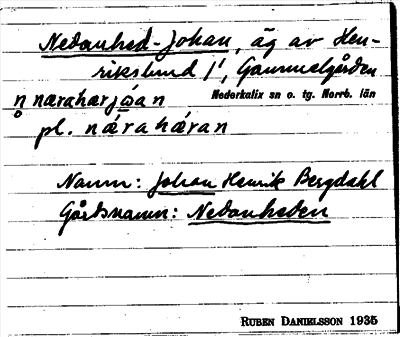 Nedanhed-Johan, äg av Hen-
rikslund 1¹, Gammelgården
n̥ nærahærjǫ́an Nederkalix sn o. tg. Norrb. län
pl. nǽrahǽran
Namn: Johan Henrik Bergdahl
Gårdsnamn: Nedanheden
RUBEN DANIELSSON 1935